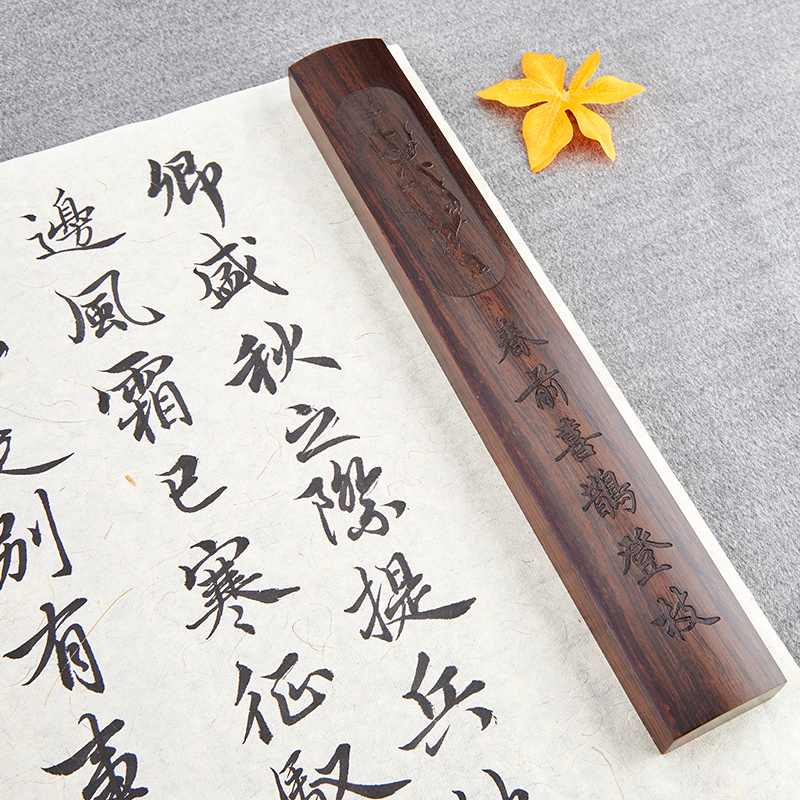 春前喜鵲登枝
卿盛秋之際提兵
邊風霜已寒征馭
是別有事